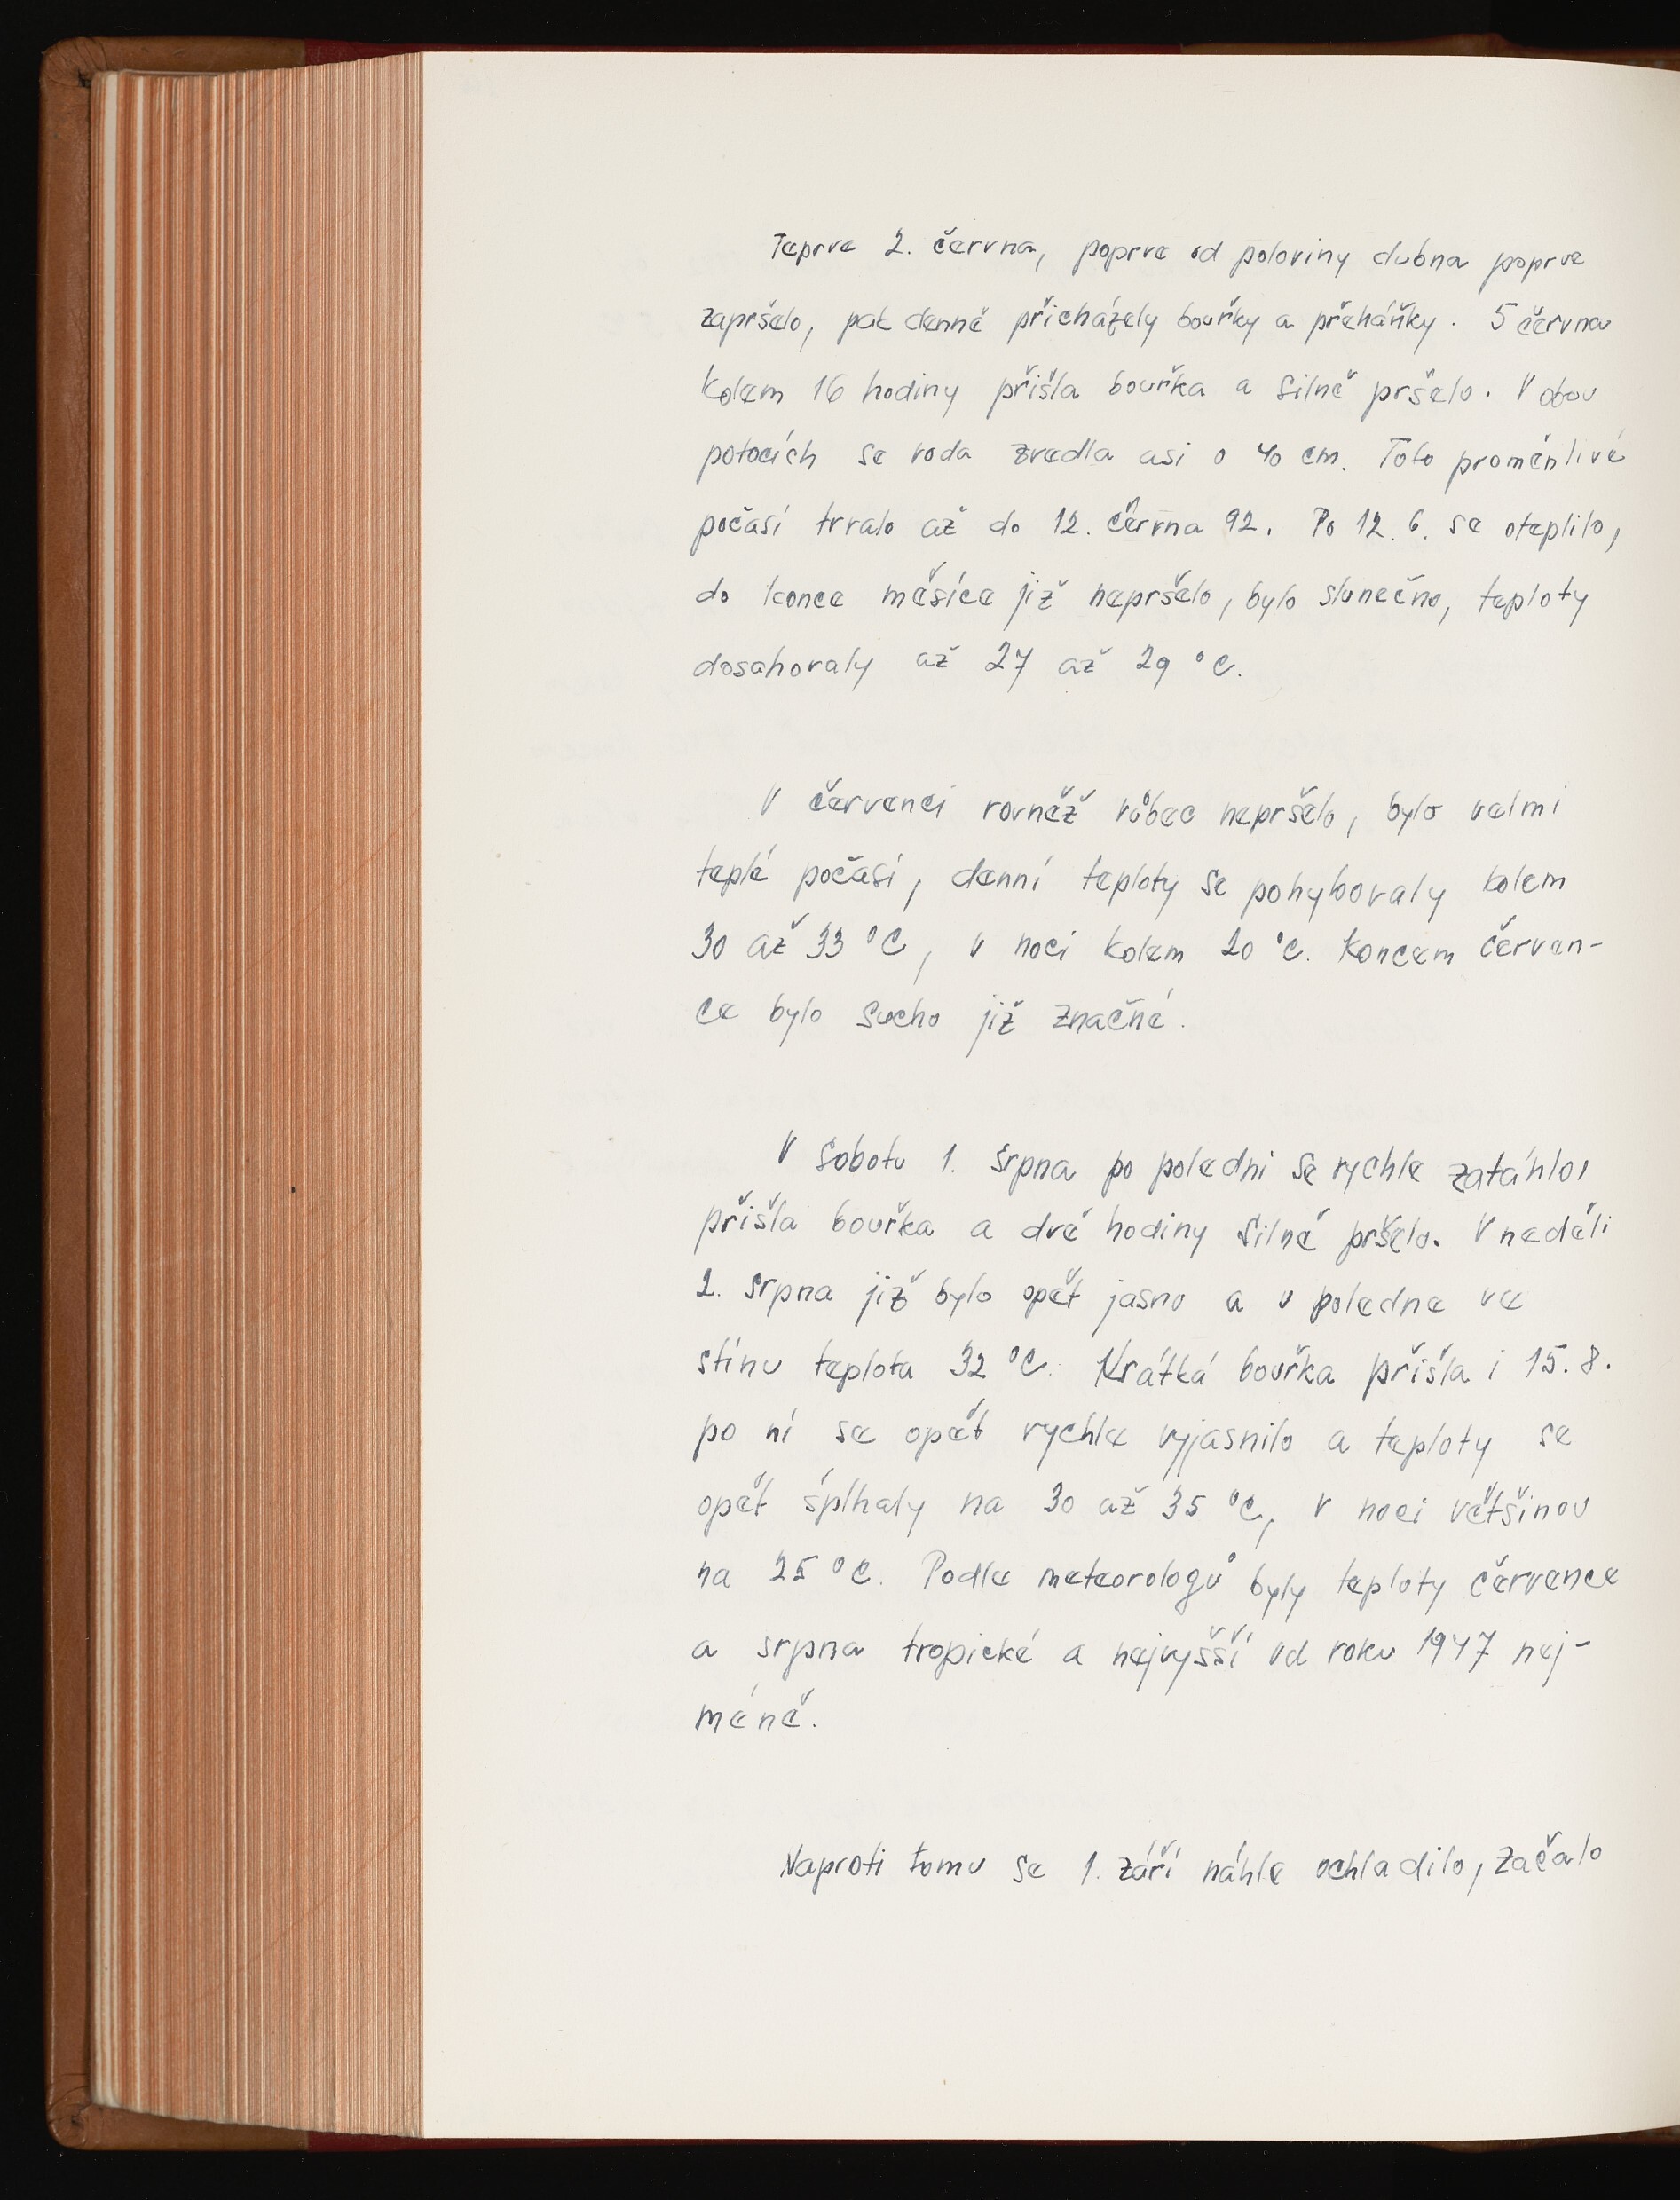 Teprve 2. června, poprve od poloviny dubna poprve
zapršelo, pak denně přicházely bouřky a přeháňky. 5 června
kolem 16 hodiny přišla bouřka a silně pršelo. V obou
potocích se voda zvedla asi o 40 cm. Toto proměnlivé
počasí trvalo až do 12. června 92. Po 12. 6. se oteplilo,
do konce měsíce již nepršelo, bylo slunečno, teploty
dosahovaly až 27 až 29 °C.
V červenci rovněž vůbec nepršelo, bylo velmi
teplé počasí, denní teploty se pohybovaly kolem
30 až 33 °C, v noci kolem 20 °C. Koncem červen-
ce bylo sucho již značné.
V sobotu 1. srpna po poledni se rychle zatáhlo,
přišla bouřka a dvě hodiny silně pršelo. V neděli
2. srpna již bylo opět jasno a v poledne ve
stínu teplota 32 °C. Krátká bouřka přišla i 15. 8.
po ní se opět rychle vyjasnilo a teploty se
opět šplhaly na 30 až 35 °C, v noci většinou
na 25 °C. Podle meteorologů byly teploty července
a srpna tropické a nejvyšší od roku 1947 nej-
méně.
Naproti tomu se 1. září náhle ochladilo, začalo